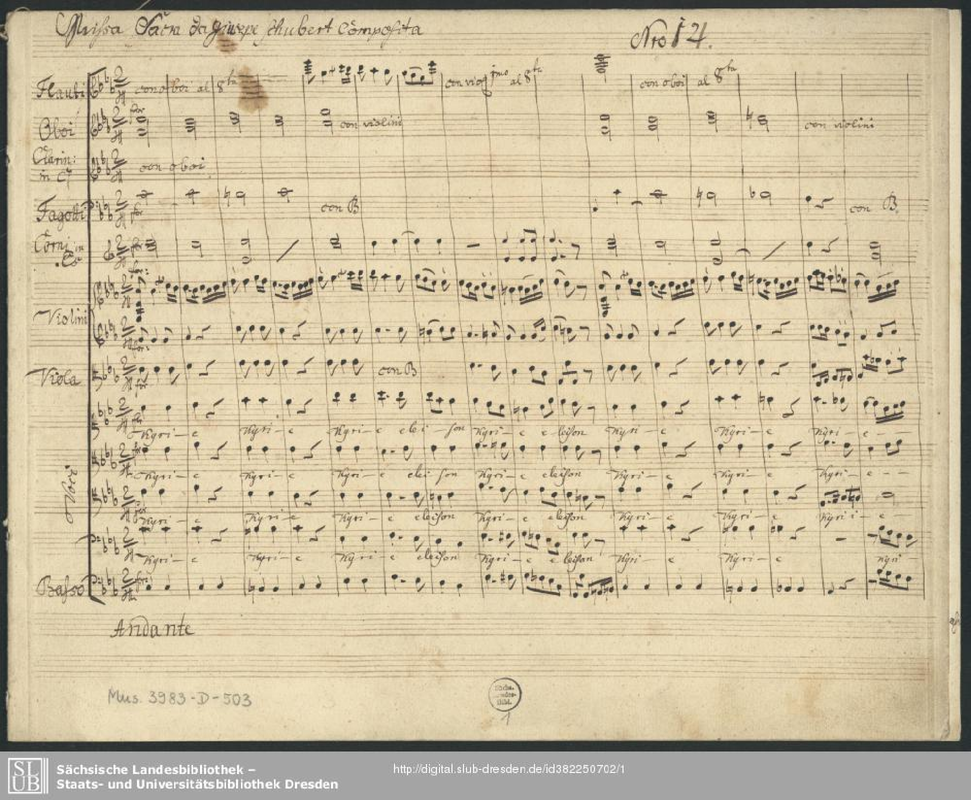 Missa Sacra da Giusepe Schubert Composta
Nro 14.
Flauti con oboi al 8tn con viol: jmo al 8tn con oboi al 8tn
Oboi for con violini con violini
Clarin: in C con oboi
Fagotti for con B con B.
Corni in for:
Violini
for:
Viola for con B
Voci
Kyri – e Kyri – e Kyri – e elei – son Kyri – e eleison Kyri – e Kyri – e Kyri – e –
Kyri – e Kyri – e Kyri – e elei son Kyri – e eleison Kyri – e Kyri – e Kyri – e – –
for Kyri – e Kyri – e Kyri – e eleison Kyri – e eleison Kyri – e Kyri – e Kyri – e
Kyri – e Kyri – e Kyri – e eleison Kyri – e eleison Kyri – e Kyri – e Kyri –
Basso for:
Andante
Mus. 3983-D-503
1
SLUB
Sächsische Landesbibliothek –
Staats- und Universitätsbibliothek Dresden
http://digital.slub-dresden.de/id382250702/1